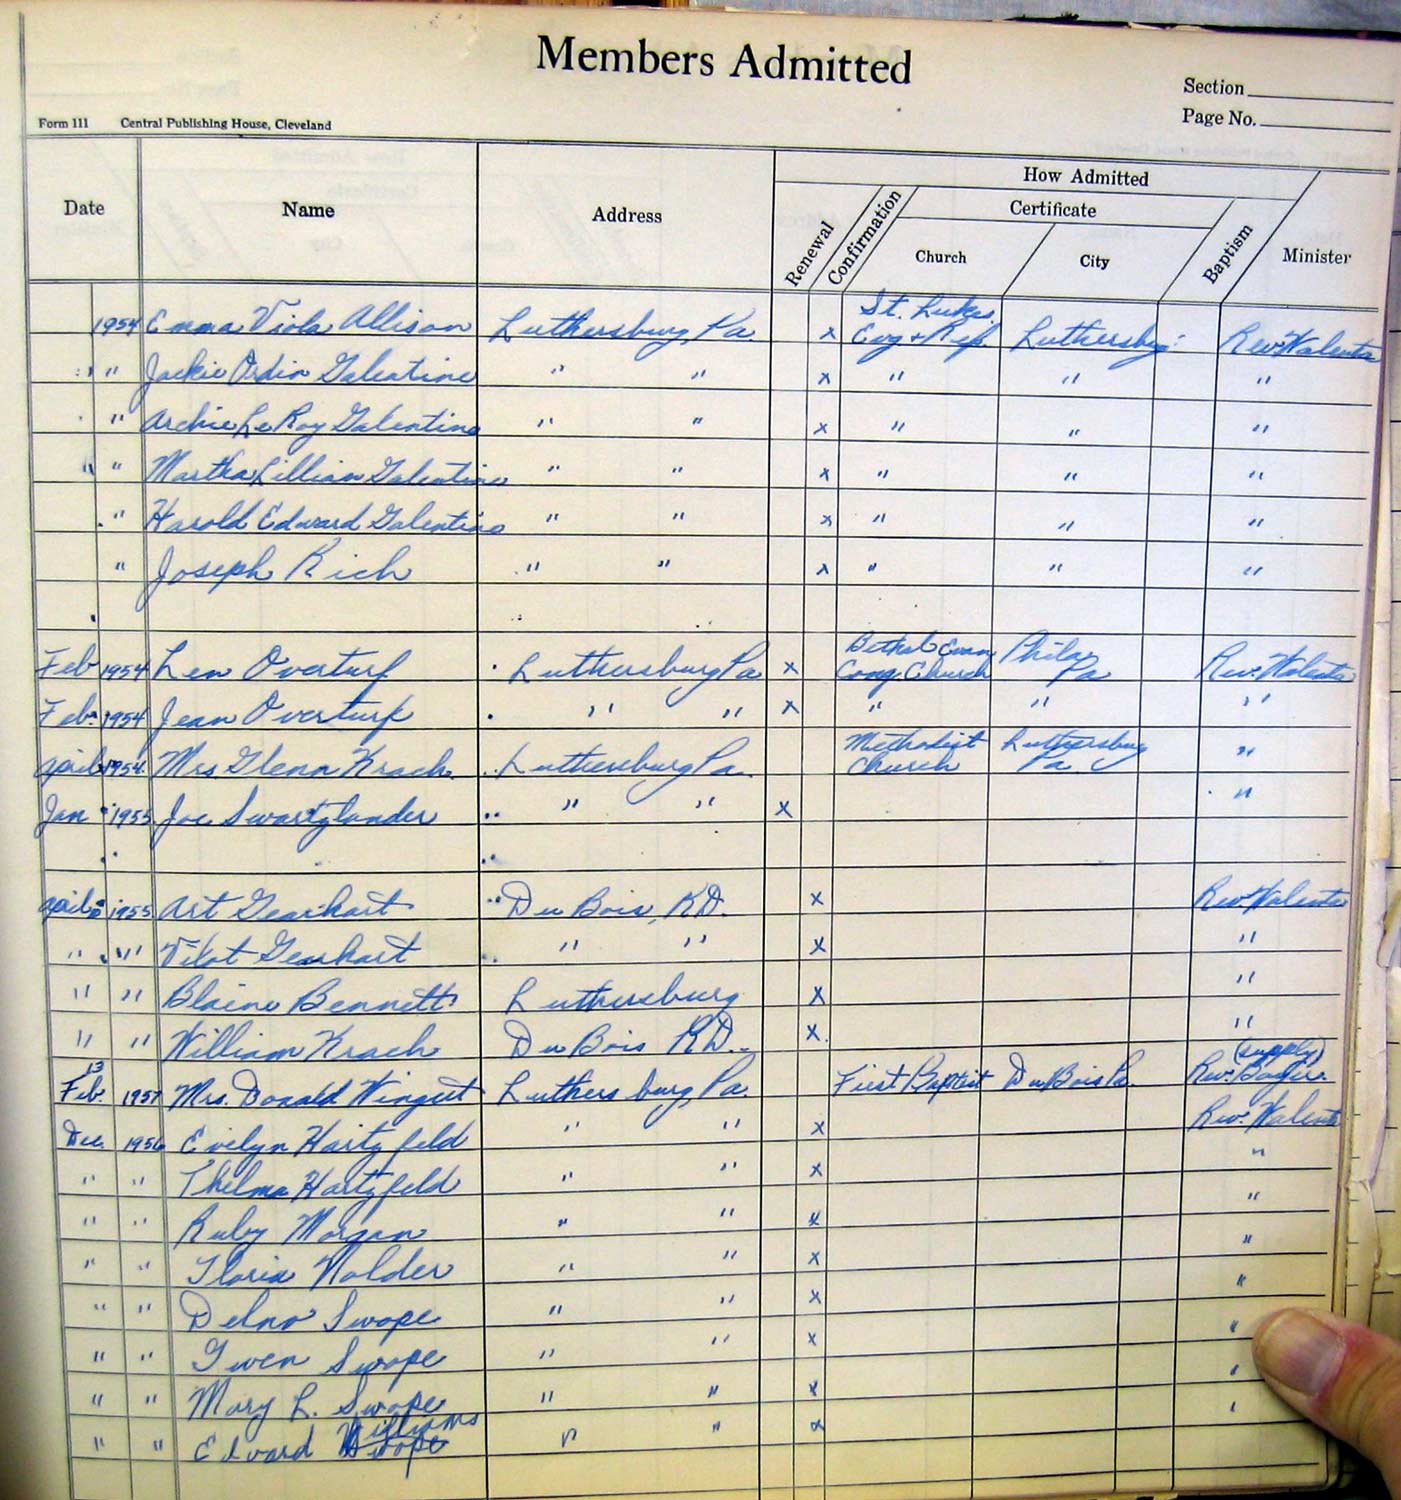 Members Admitted
Section
Page No.
Form 111 Central Publishing House, Cleveland
Date Name Address How Admitted
Renewal Confirmation Certificate Church City Baptism Minister
1954 Emma Viola Allison Luthersburg Pa. x St. Lukes Evg + Ref. Luthersbg. Rev. Valenta
" Jackie Ordin Galentine " " x " " "
" Archie LeRoy Galentine " " x " " "
" " Martha Lillian Galentine " " x " " "
" Harold Edward Galentine " " x " " "
" Joseph Rich " " x " " "
Feb 1954 Len Overturf Luthersburg Pa x Bethel Evan Cong. Church Phila Pa Rev. Valenta
Feb. 1954 Jean Overturf " " x " " "
April 1954 Mrs Glenn Krach Luthersburg Pa. Methodist Church Luthersburg Pa. "
Jan 1955 Joe Swartzlander " " x "
April 1955 Art Gearhart Du Bois, R.D. x Rev. Valenta
" " Gearhart " " x "
" " Blaine Bennett Luthersburg x "
" " William Krach Du Bois R.D. x "
Feb. 13 1957 Mrs. Donald Wingert Luthersburg Pa. First Baptist Du Bois Pa. (supply) Rev.
Dec. 1956 Evelyn Hartzfeld " " x Rev. Valenta
" " Thelma Hartzfeld " " x "
" " Ruby Morgan " " x "
" " Gloria Nolder " " x "
" " Delno Swope " " x "
" " Gwen Swope " " x "
" " Mary L. Swope " " x "
" " Edward Williams " " x "